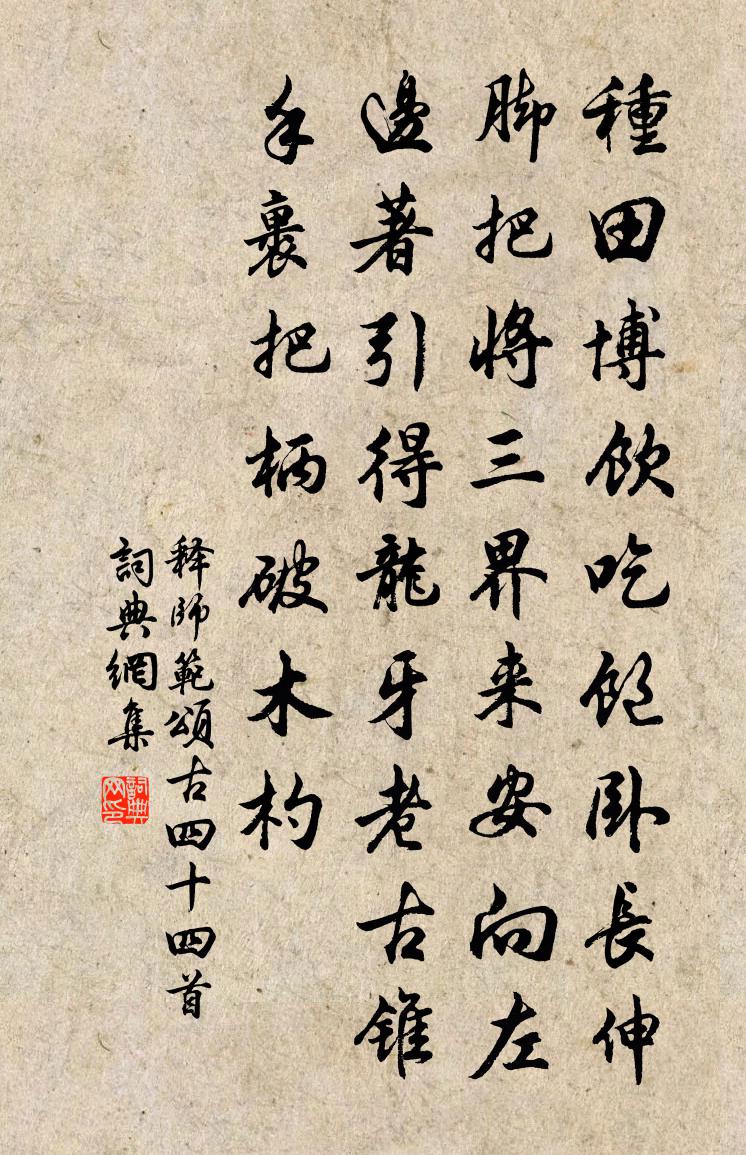 種田博飲吃飽卧長伸
脚把將三界来安向左
邊著引得龍牙老古錐
手裏把柄破木杓
释師範頌古四十四首
詞典網集
詞典网印